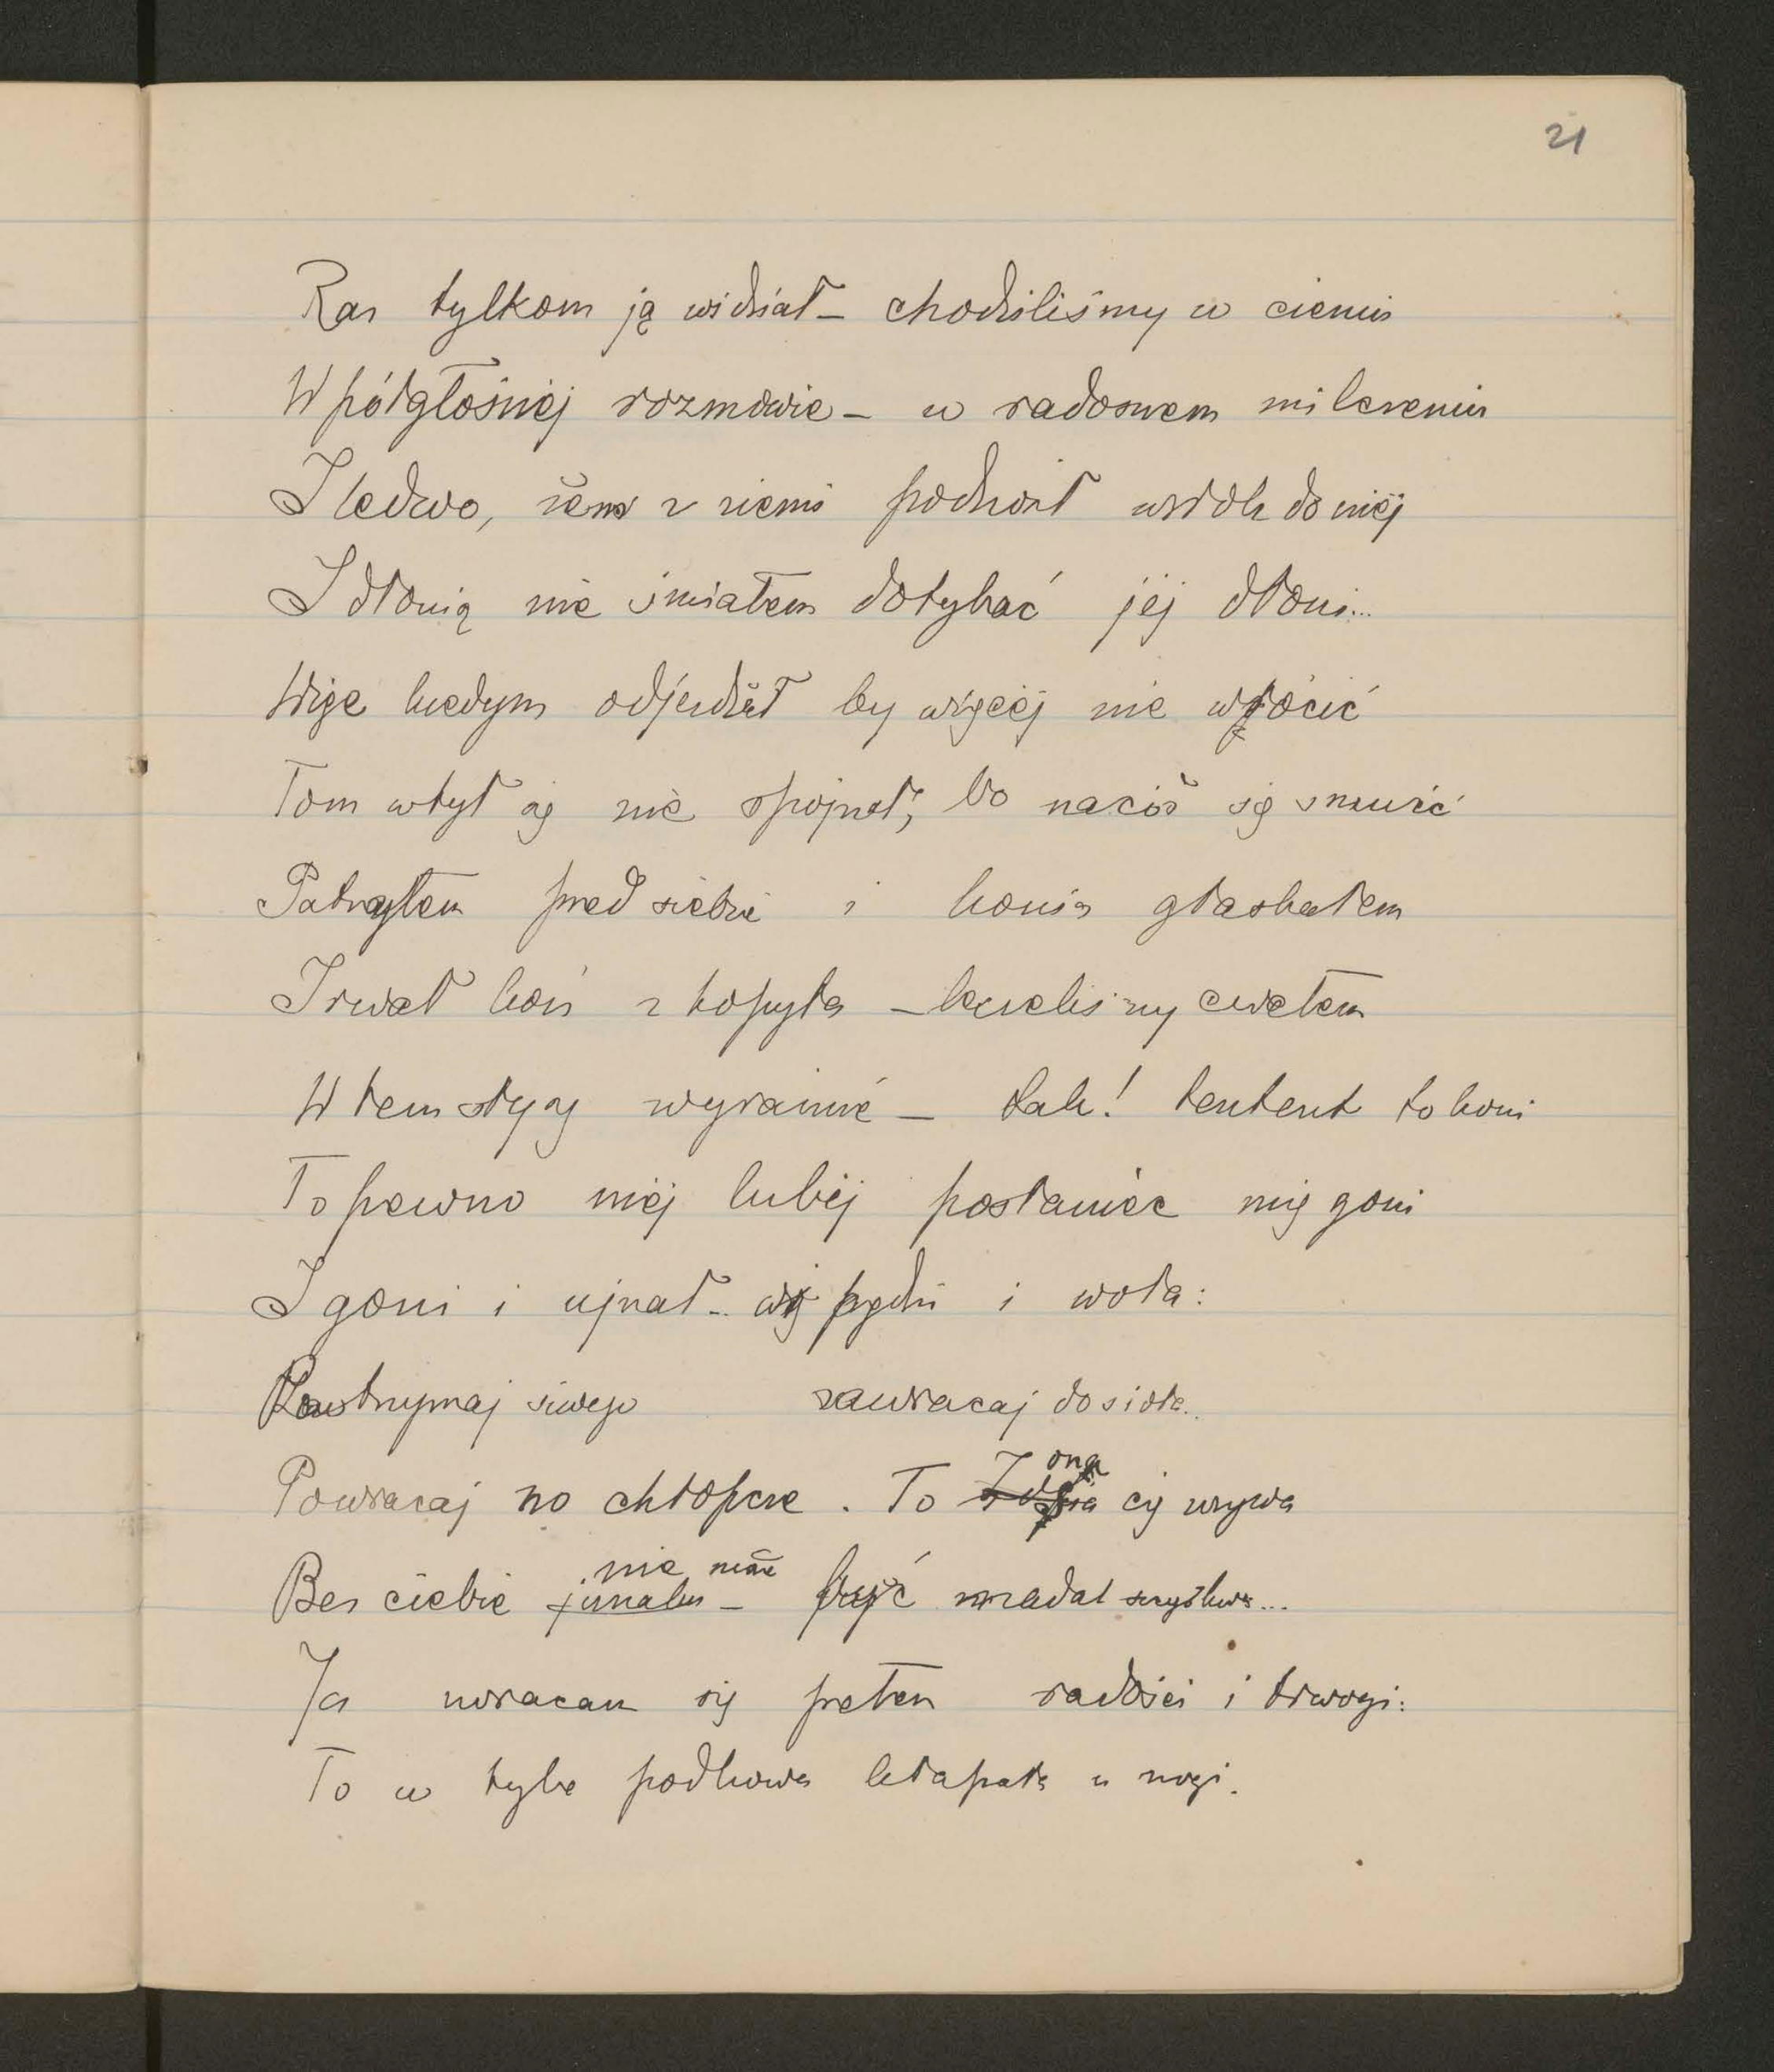 21
Raz tylkom ją widział – chodziliśmy w cieniu
W półgłośnej rozmowie – w radosnem milczeniu
I ledwo, żem z ziemi podnosił wzrok do niej
I dłonią nie śmiałem dotykać jej dłoni...
Więc kiedym odjeżdżał by więcej nie wrócić
Tom w tył się nie spojrzał, bo na cóż się smucić
Patrzyłem przed siebie i konia głaskałem
I rwał koń z kopyta – lecieliśmy cwałem
Wtem słyszę wyraźnie – tak! tentent to koni
To pewno mej lubej posłaniec mię goni
I goni i ujrzał – pędzi i woła:
Powstrzymaj siwego zawracaj do sioła..
Powracaj no chłopcze. To ona cię wzywa
Bez ciebie nie może być nadal szczęśliwa...
Ja zwracam się pełen radości i trwogi:
To w tyle podkowa kłapała u nogi.